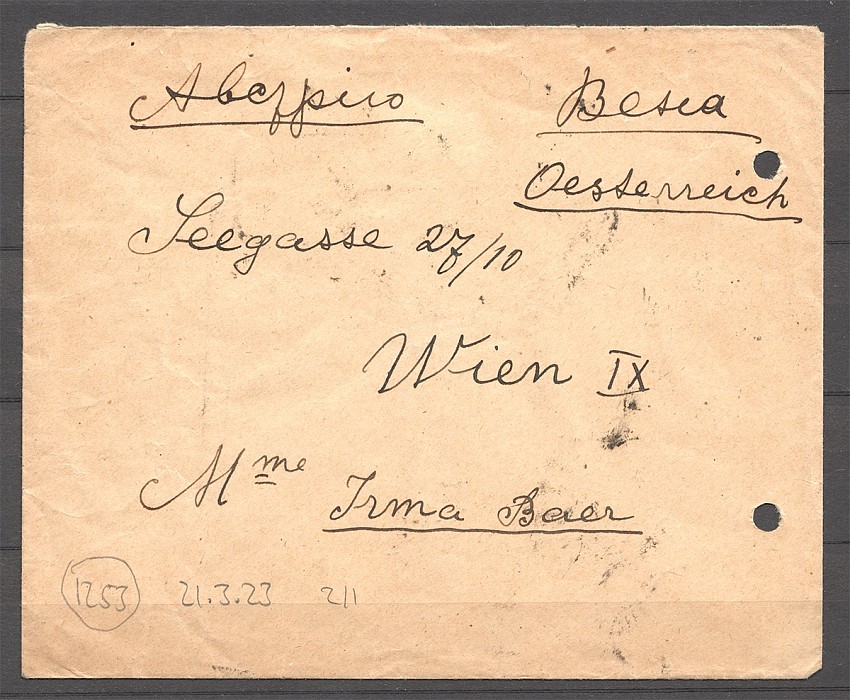 Австрию Вена
Oesterreich
Seegasse 27/10
Wien IX
Mme Irma Baer
1253 21.3.23 211